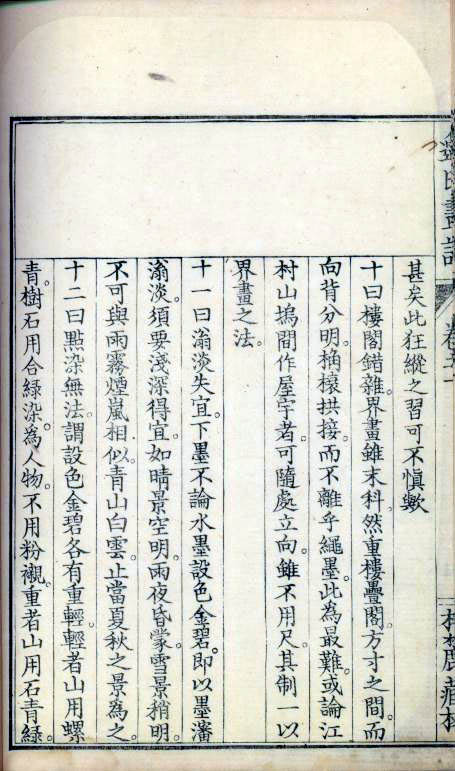 甚矣此狂縱之習可不慎歟
十曰樓閣錯雜。界畫雖末科。然重樓疊閣。方寸之間。而
向背分明。桷榱拱接。而不離乎繩墨。此為最難。或論江
村山塢間作屋宇者。可隨處立向。雖不用尺。其制一以
界畫之法。
十一曰滃淡失宜。下墨不論水墨設色金碧。即以墨瀋
滃淡。須要淺深得宜。如晴景空明。雨夜昏蒙。雪景稍明。
不可與雨霧煙嵐相似。青山白雲。止當夏秋之景為之。
十二曰點染無法。謂設色金碧各有重輕。輕者山用螺
青。樹石用合綠染。為人物。不用粉襯。重者山用石青綠。